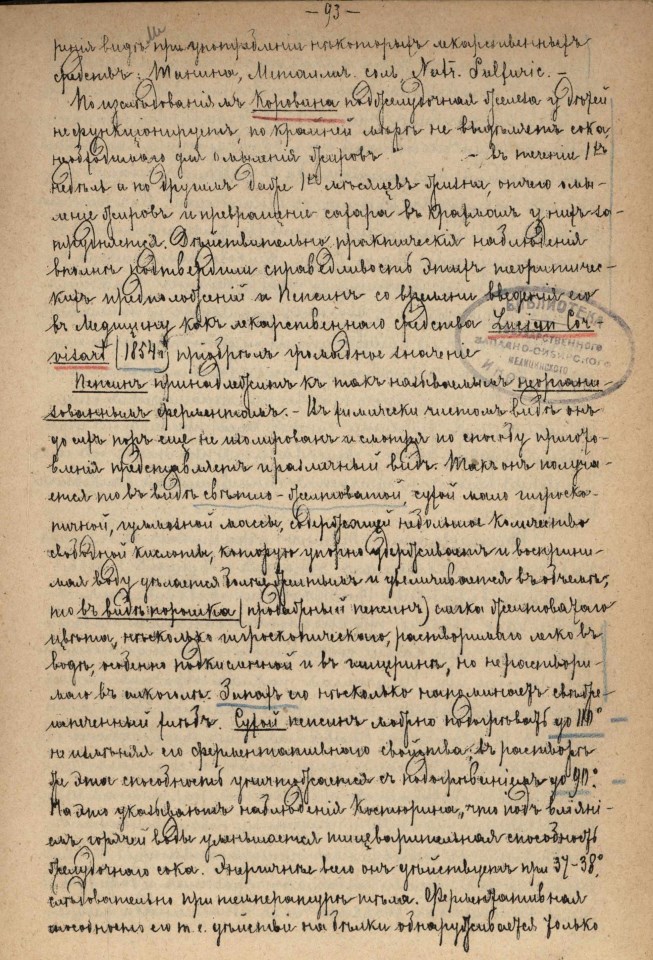 — 93 —
при употребленіи нѣкоторыхъ лекарственныхъ
средствъ: Танина, Металлич. соль, Natr. Sulfuric. —
По изслѣдованіямъ Коровина поджелудочная железа у дѣтей
не функціонируетъ, по крайней мѣрѣ не выдѣляетъ сока
необходимаго для омыленія жировъ " — въ теченіи 1ыхъ
недѣль а по другимъ даже 1ыхъ мѣсяцевъ жизни, отчего омы-
леніе жировъ и превращеніе сахара въ крахмалъ у нихъ за-
трудняется. Дѣйствительно, практическія наблюденія
вполнѣ подтвердили справедливость этихъ теоритичес-
кихъ предположеній и Пепсинъ со времени введенія его
въ Медицину какъ лекарственнаго средства Lucien Cor-
visart (1854г) пріобрѣлъ громадное значеніе
БИБЛИОТЕКА
ГОСУДАРСТВЕННОГО
ЗАПАДНО-СИБИРСКОГО
МЕДИЦИНСКОГО
Пепсинъ принадлежитъ къ такъ называемымъ неоргани-
зованнымъ ферментамъ. — Въ химически чистомъ видѣ онъ
до сихъ поръ еще не изолированъ и смотря по способу пригото-
вленія представляетъ и различный видъ. Такъ онъ получа-
ется то въ видѣ свѣтло-желтоватой, сухой мало гигроско-
пичной, гуммозной массы, содержащей небольшое количество
свободной кислоты, которую упорно удерживаетъ и восприни-
мая воду дѣлается болѣе и увеличивается въ объемѣ;
то въ видѣ порошка (продажный пепсинъ) слегка желтоватаго
цвѣта, нѣсколько гигроскопическаго, растворимаго легко въ
водѣ, особенно подкисленной и въ глицеринѣ, но не раствори-
маго въ алкоголѣ. Запахъ его нѣсколько напоминаетъ свѣже-
испеченный хлѣбъ. Сухой пепсинъ можно подогрѣвать до 110°
не измѣняя его ферментативнаго свойства; въ растворѣ
же эта способность уничтожается съ подогрѣваніемъ до 90°.
На это указываютъ наблюденія Костюрина, что подъ влія­ні-
емъ горячей воды уменьшается пищеварительная способность
желудочнаго сока. Энергичнѣе всего онъ дѣйствуетъ при 37-38°,
слѣдовательно при температурѣ тѣла. Ферментативная
способность его т. е. дѣйствія на бѣлки обнаруживается только